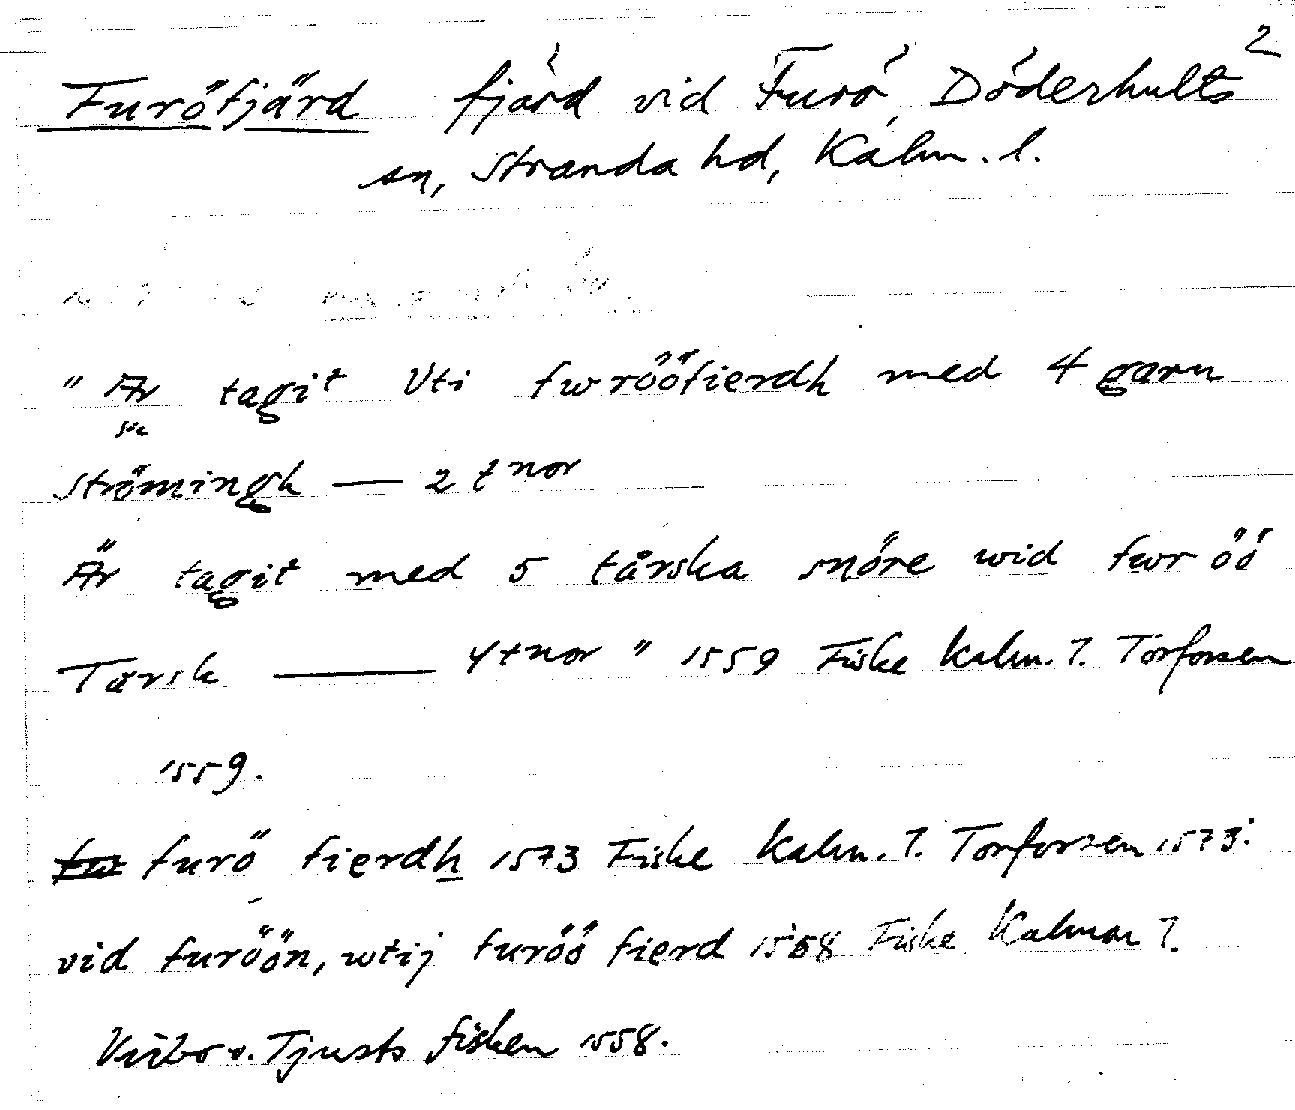 2
Furöfjärd fjärd vid Furö, Döderhults
sn, Stranda hd, Kalm. l.
" Är tagit Uti fwrööfierdh med 4 garn
Strömingh — 2 tnor
Är tagit med 5 tårska snöre wid fwröö
Tarsk — 4 tnor " 1559 Fiske Kalm. 7. Torforsen
1559.
furö fierdh 1573 Fiske Kalm. 7. Torforsen 1573.
vid furöön, wtij furöö fierd 1558 Fiske Kalmar 7.
Virbo o. Tjusts fisken 1558.